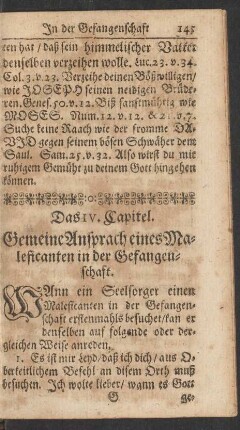 In der Gefangenschaft 145
ten hat / daß sein himmelischer Vatter
denselben verzeihen wolle. Luc. 23. v. 34.
Col. 3. v. 23. Verzeihe deinen Bößwilligen /
wie JOSEPH seinen neidigen Brüde-
ren. Genes. 50. v. 12. Biß sanfftmühtig wie
MOSES. Num. 12. v. 12. & 21. v. 7.
Suche keine Raach wie der fromme DA-
VID gegen seinem bösen Schwäher dem
Saul. Sam. 25. v. 32. Also wirst du mit
ruhigem Gemüht zu deinem Gott hingehen
können.
Das IV. Capitel.
Gemeine Ansprach eines Ma-
leficanten in der Gefangen-
schaft.
WAnn ein Seelsorger einen
Maleficanten in der Gefangen-
schaft erstenmahls besuchet / kan er
denselben auf folgende oder der-
gleichen Weise anreden.
1. Es ist mir leyd / daß ich dich / aus O-
berkeitlichem Befehl an disem Orth muß
besuchen. Ich wolte lieber / wann es Gott
G ge-